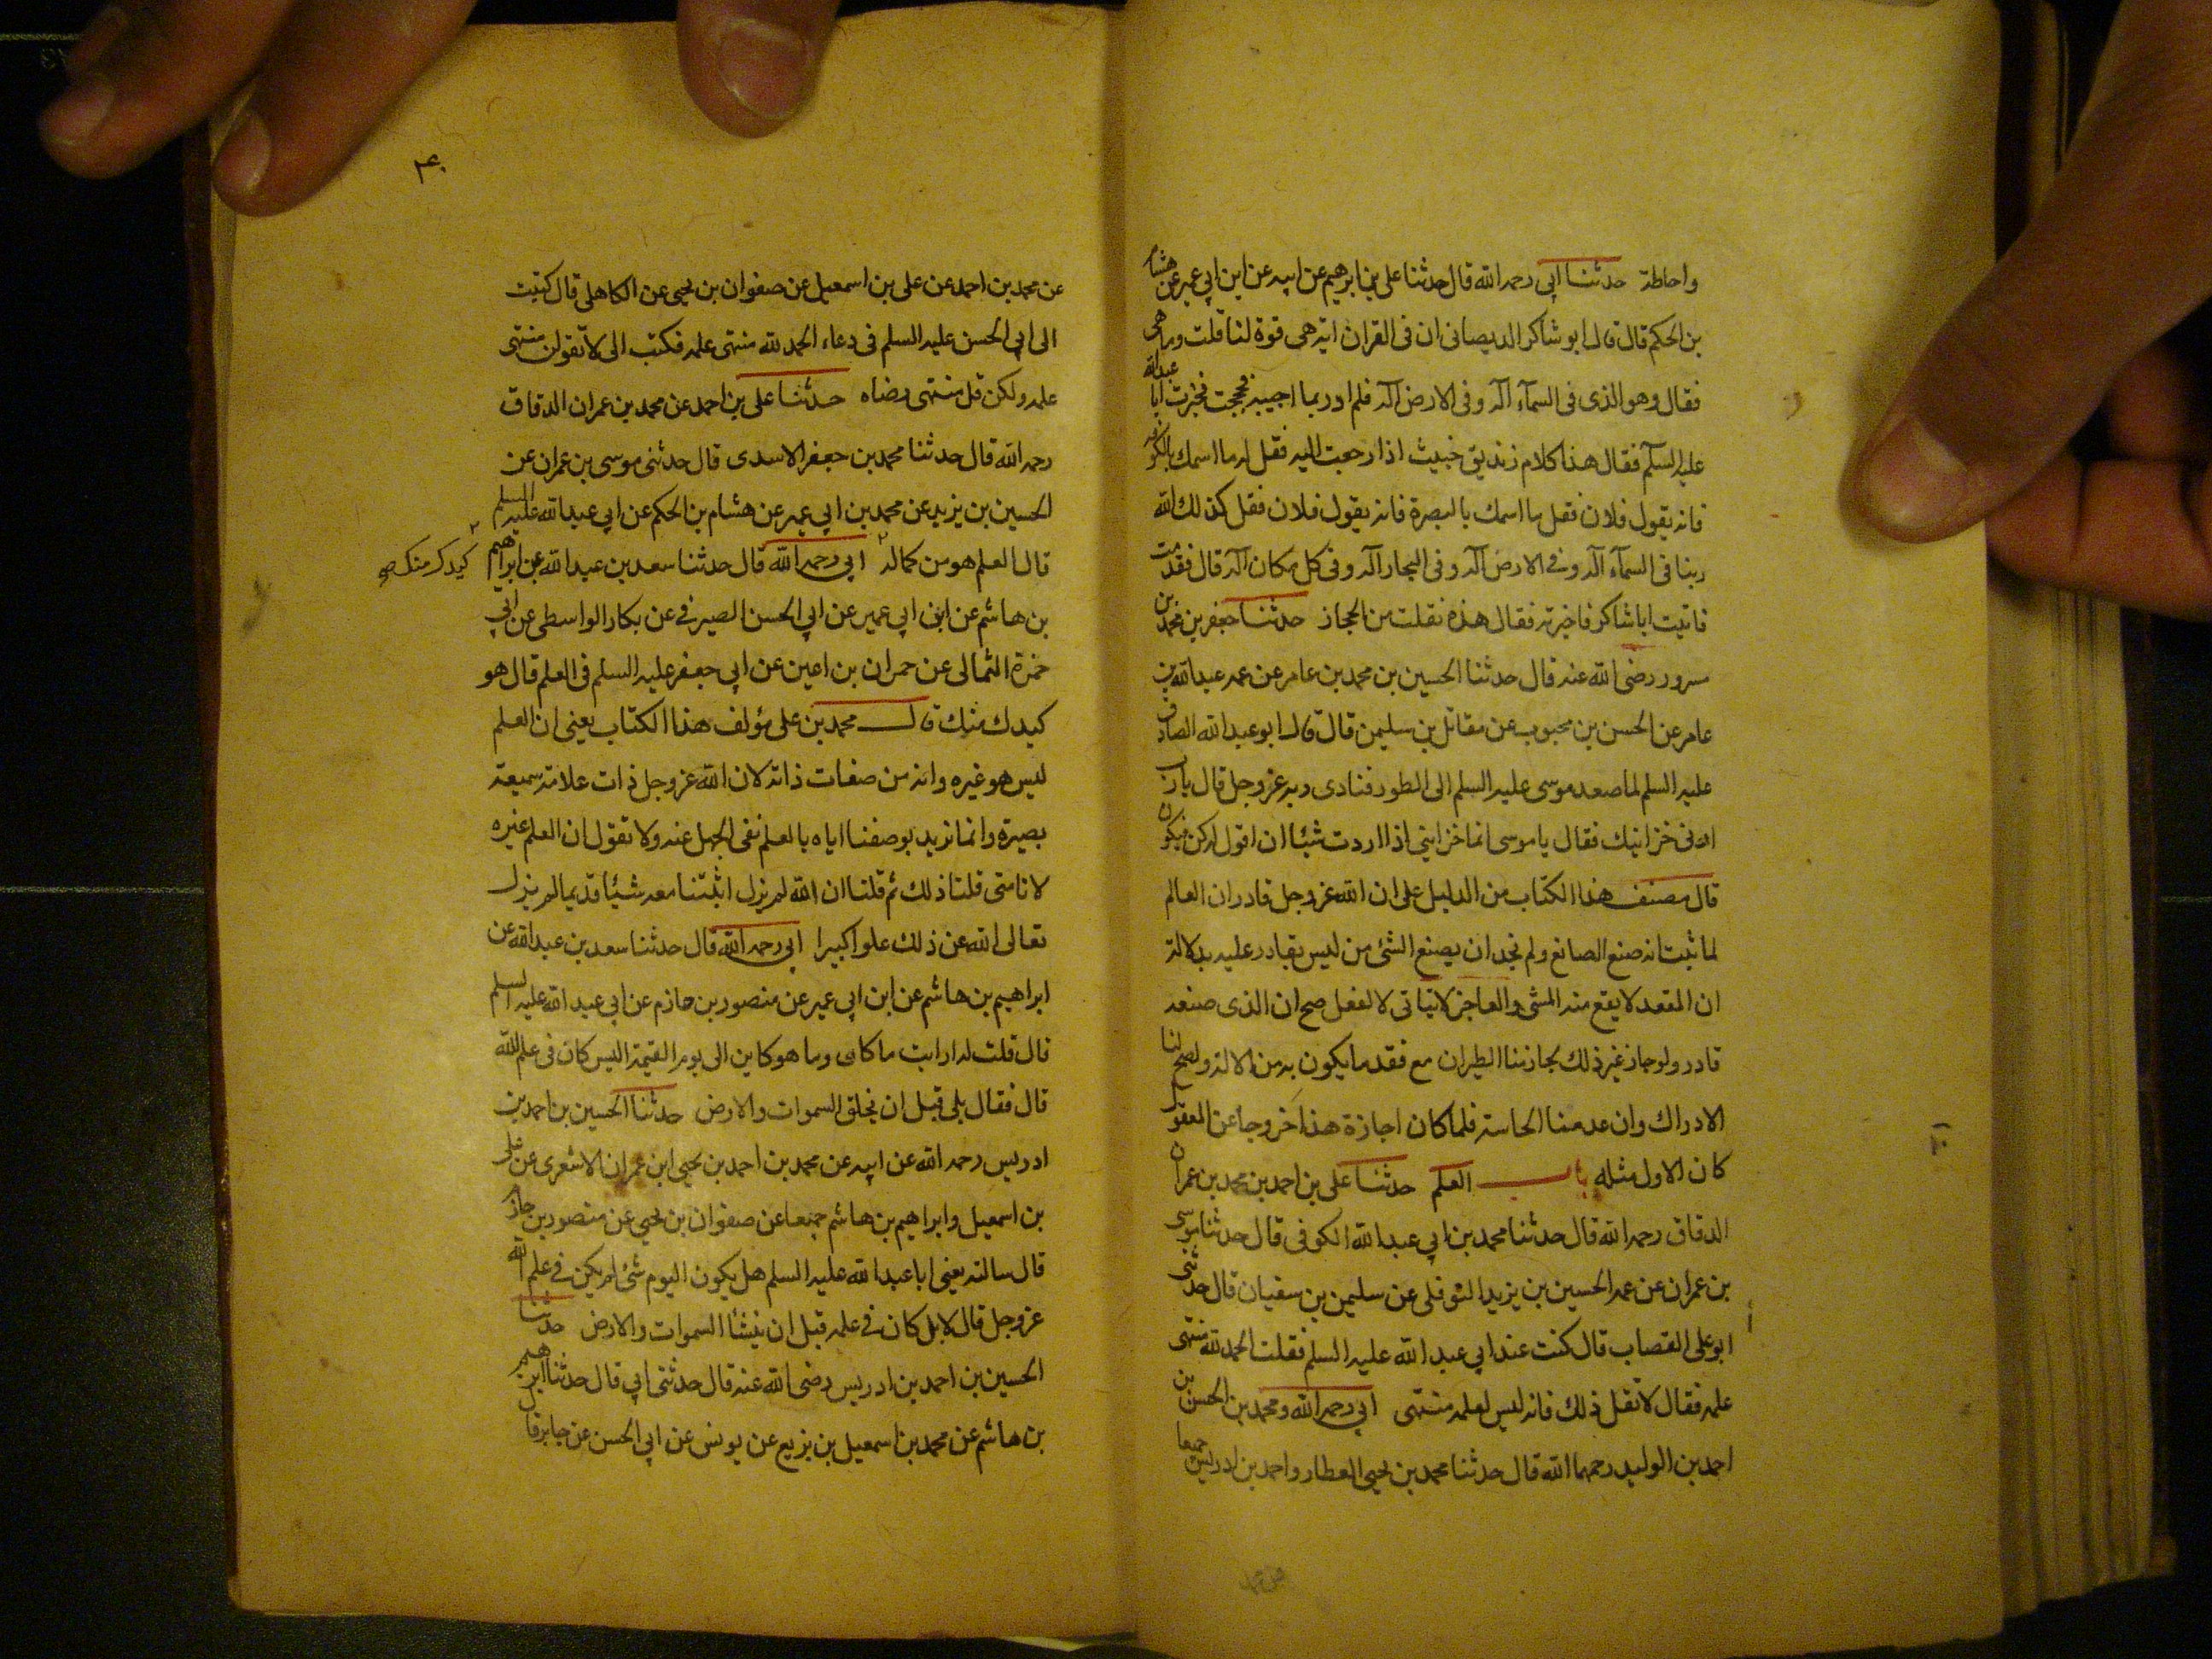 واحاطة حدثنا ابي رحمه الله قال حدثنا علي بن ابرهيم عن ابيه عن ابن ابي عمير عن هشام
بن الحكم قال قال ابو شاكر الديصاني ان في القران اية هي قوة لنا قلت وما هي
فقال وهو الذي في السمآء اله وفي الارض اله فلم ادر بما اجيبه فحججت فخبرت ابا عبد الله
عليه السلم فقال هذا كلام زنديق خبيث اذا رجعت اليه فقل له ما اسمك بالكوفه
فانه يقول فلان فقل ما اسمك بالبصرة فانه يقول فلان فقل كذلك الله
ربنا في السمآء اله وفي الارض اله وفي البحار اله وفي كل مكان اله قال فقدمت
فاتيت ابا شاكر فاخبرته فقال هذه نقلت من الحجاز حدثنا جعفر بن محمد بن
مسرور رضى الله عنه قال حدثنا الحسين بن محمد بن عامر عن عمه عبد الله بن
عامر عن الحسن بن محبوب عن مقاتل بن سليمن قال قال ابو عبد الله الصادق
عليه السلم لما صعد موسى عليه السلم الى الطور فنادى ربه عز وجل قال يا رب
ارني خزاينك فقال يا موسى انما خزايني اذا اردت شيئا ان اقول له كن فيكون
قال مصنف هذا الكتاب من الدليل على ان الله عز وجل قادر ان العالم
لما ثبت انه صنع الصانع ولم نجد ان يصنع الشئ من ليس بقادر عليه بدلالة
ان المقعد لا يقع منه المشي والعاجز لا يتاتى لا لفعل صح ان الذي صنعه
قادر ولو جاز غير ذلك لجاز منا الطيران مع فقد ما يكون به من الالة ولصح لنا
الادراك وان عدمنا الحاسة فلما كان اجازة هذا خروجا عن المعقول
كان الاول مثله باب العلم حدثنا علي بن احمد بن محمد بن عمران
الدقاق رحمه الله قال حدثنا محمد بن ابي عبد الله الكوفي قال حدثنا موسى
بن عمران عن عمه الحسين بن يزيد النوفلي عن سليمن بن سفيان قال حدثني
ابو علي القصاب قال كنت عند ابي عبد الله عليه السلم فقلت الحمد لله منتهى
علمه فقال لا تقل ذلك فانه ليس لعلمه منتهى ابي رحمه الله ومحمد بن الحسن بن
احمد بن الوليد رحمهما الله قال حدثنا محمد بن يحيى العطار واحمد بن ادريس جميعا
۴۰
عن محمد بن احمد عن علي بن اسمعيل عن صفوان بن يحيى عن الكاهلي قال كتبت
الى ابي الحسن عليه السلم في دعاء الحمد لله منتهى علمه فكتب الى لا تقولن منتهى
علمه ولكن قل منتهى رضاه حدثنا علي بن احمد عن محمد بن عمران الدقاق
رحمه الله قال حدثنا محمد بن جعفر الاسدى قال حدثني موسى بن عمران عن
الحسين بن يزيد عن محمد بن ابي عمير عن هشام بن الحكم عن ابي عبد الله عليه السلم
قال العلم هو من كماله ابي رحمه الله قال حدثنا سعد بن عبد الله عن ابراهيم
كيدك منك صح
بن هاشم عن ابن ابي عمير عن ابي الحسن الصيرفي عن بكار الواسطى عن ابي
حمزة الثمالى عن حمران بن اعين عن ابي جعفر عليه السلم في العلم قال هو
كيدك منك قال محمد بن علي مؤلف هذا الكتاب يعني ان العلم
ليس هو غيره وانه من صفات ذاته لان الله عز وجل ذات علامة سميعة
بصيرة وانما نريد بوصفنا اياه بالعلم نفى الجهل عنه ولا نقول ان العلم غيره
لانا متى قلنا ذلك ثم قلنا ان الله لم يزل اثبتنا معه شيئا قديما لم يزل
تعالى الله عن ذلك علوا كبيرا ابي رحمه الله قال حدثنا سعد بن عبد الله عن
ابراهيم بن هاشم عن ابن ابي عمير عن منصور بن حازم عن ابي عبد الله عليه السلم
قال قلت له ارايت ما كان وما هو كاين الى يوم القيمة اليس كان في علم الله
قال فقال بلى قبل ان يخلق السموات والارض حدثنا الحسين بن احمد بن
ادريس رحمه الله عن ابيه عن محمد بن احمد بن يحيى ابن عمران الاشعرى عن علي
بن اسمعيل وابراهيم بن هاشم جميعا عن صفوان بن يحيى عن منصور بن حازم
قال سالته يعني ابا عبد الله عليه السلم هل يكون اليوم شئ لم يكن في علم الله
عز وجل قال لا بل كان في علمه قبل ان ينشأ السموات والارض حدثنا
الحسين بن احمد بن ادريس رضى الله عنه قال حدثني ابي قال حدثنا ابرهيم
بن هاشم عن محمد بن اسمعيل بن بزيع عن يونس عن ابي الحسن عن جابر قال